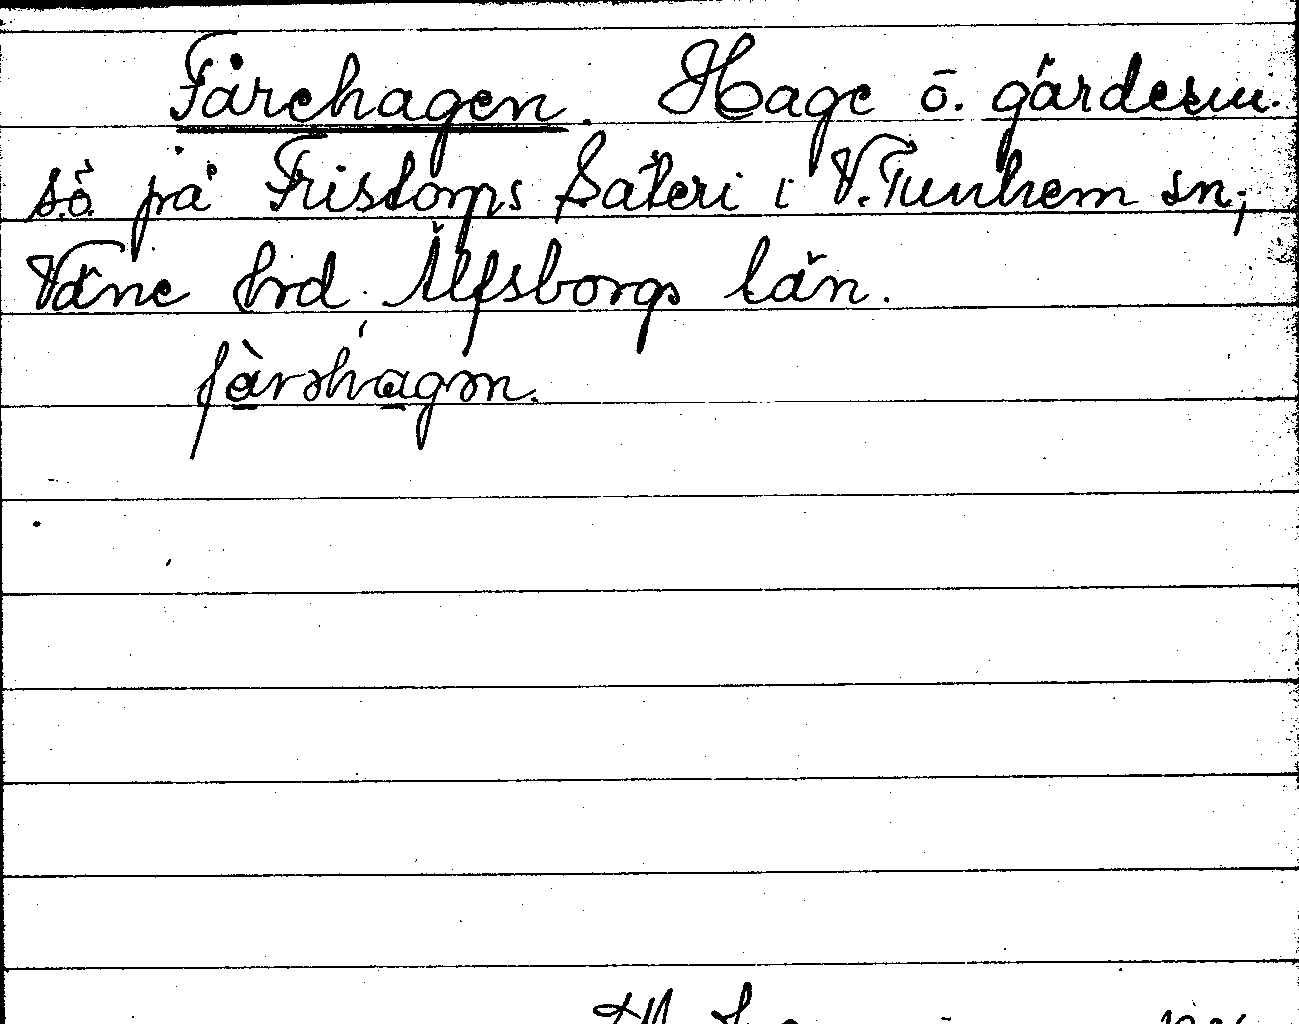 Fårehagen. Hage ö. gärdesm.
s.ö. på Fristorps Säteri i V. Tunhem sn,
Väne hrd Älfsborgs län.
fàrəhagən.